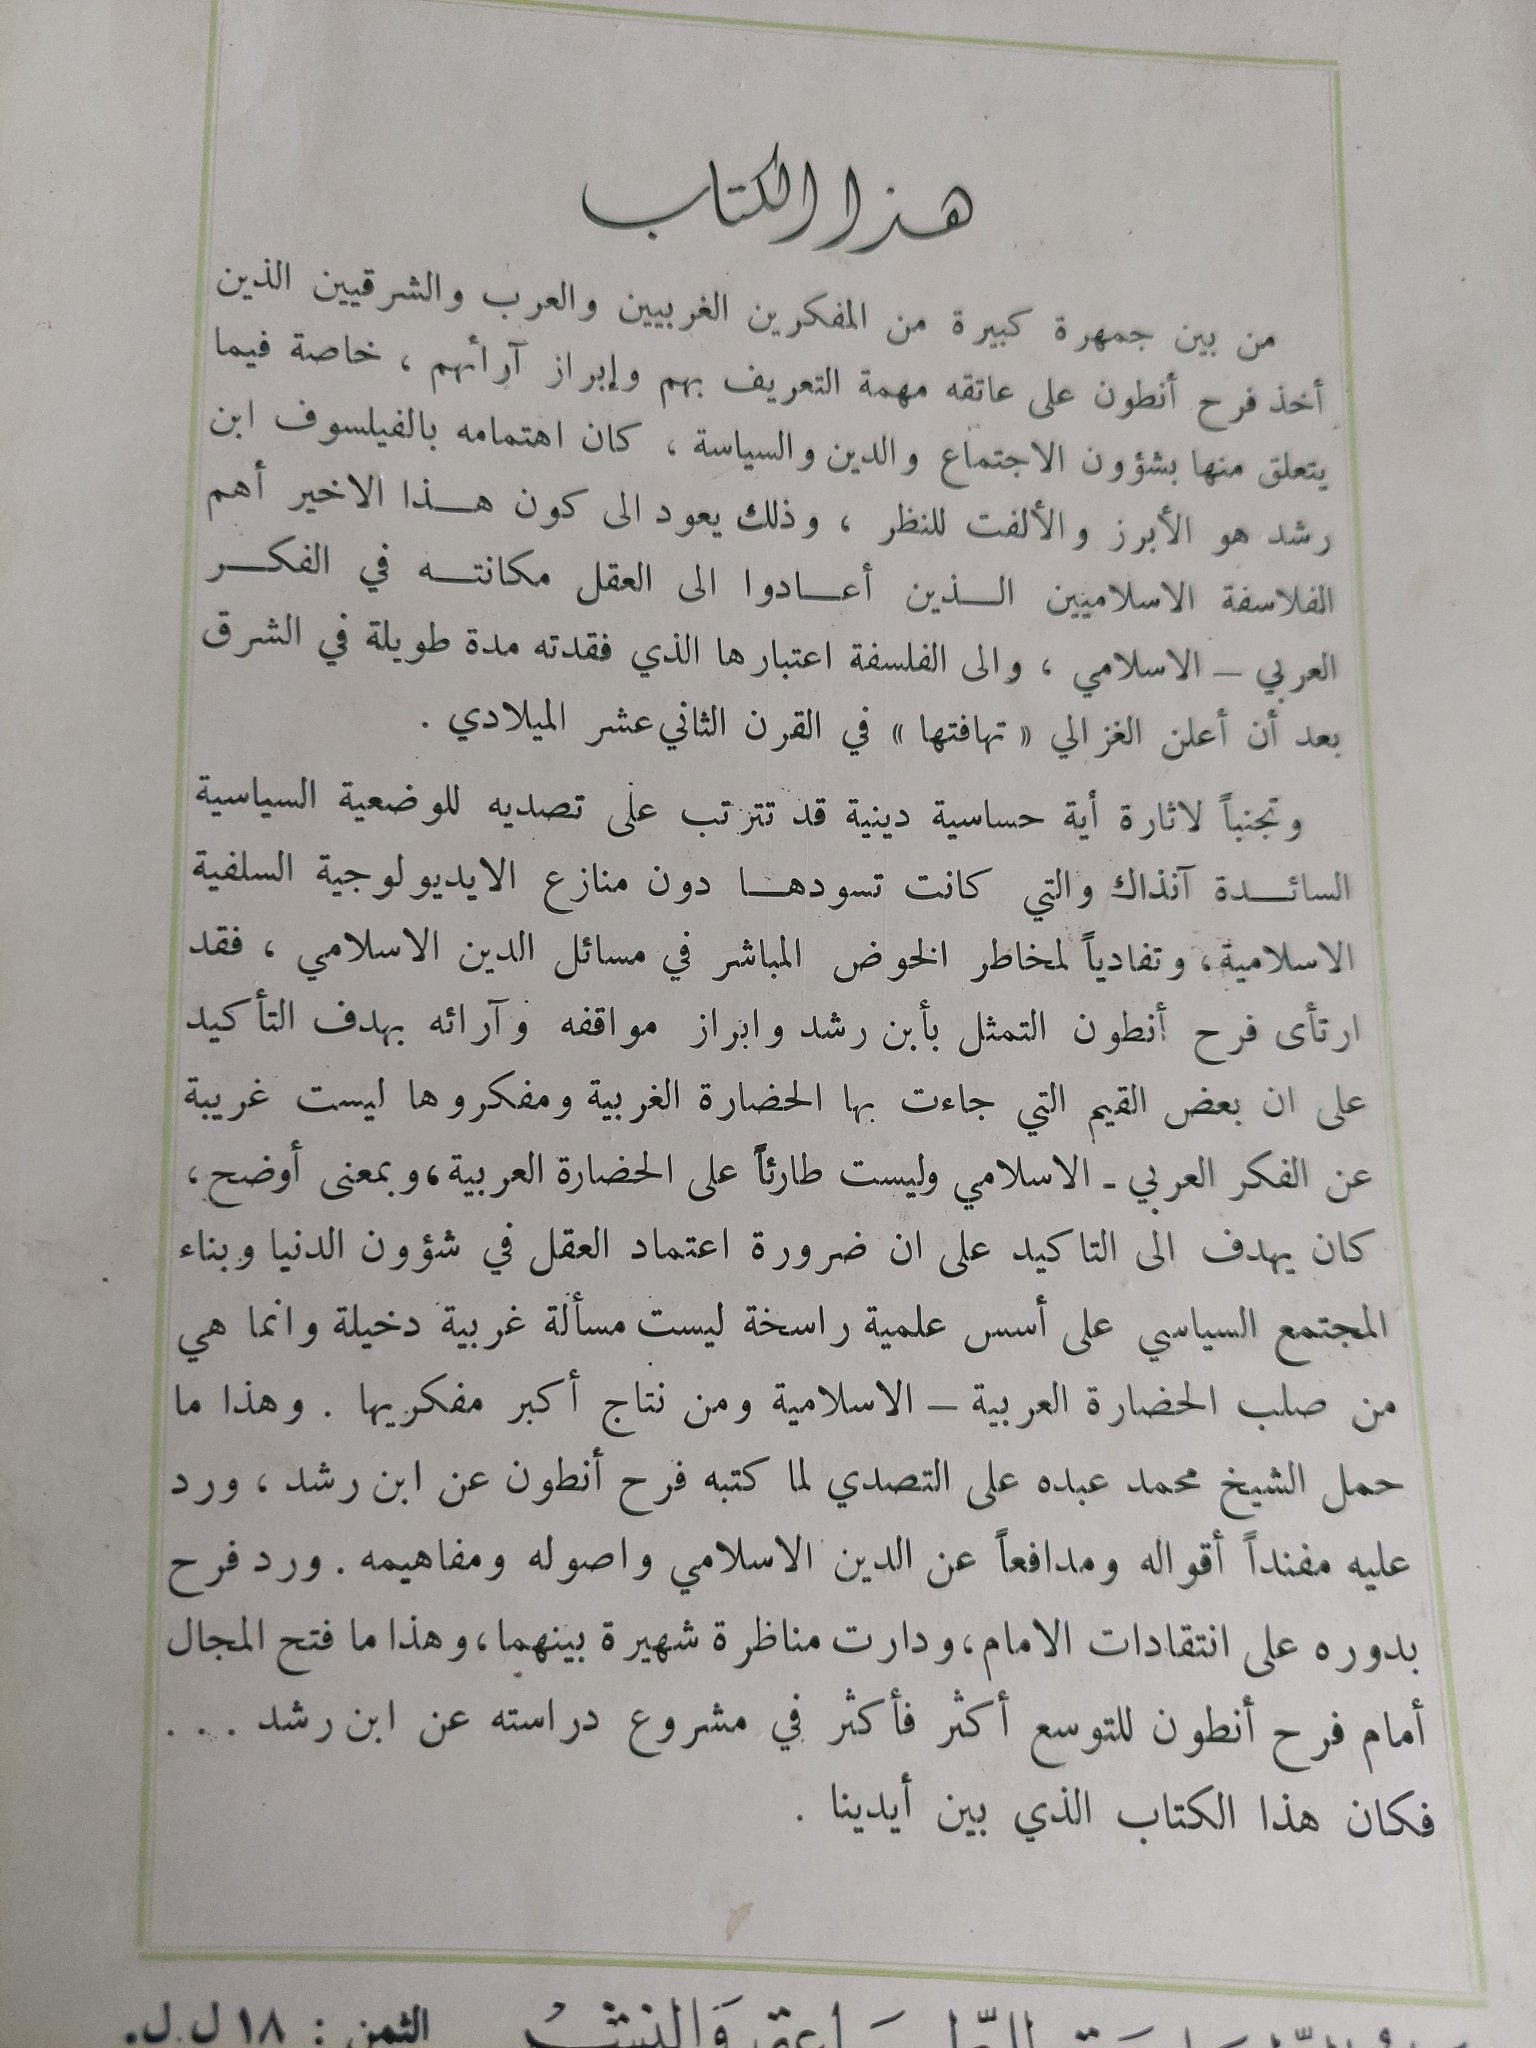 هذا الكتاب
من بين جمهرة كبيرة من المفكرين الغربيين والعرب والشرقيين الذين
أخذ فرح أنطون على عاتقه مهمة التعريف بهم وإبراز آرائهم ، خاصة فيما
يتعلق منها بشؤون الاجتماع والدين والسياسة ، كان اهتمامه بالفيلسوف ابن
رشد هو الأبرز والألفت للنظر ، وذلك يعود الى كون هـذا الاخير أهم
الفلاسفة الاسلاميين الـذين أعـادوا الى العقل مكانتـه في الفكـر
العربي – الاسلامي ، والى الفلسفة اعتبارها الذي فقدته مدة طويلة في الشرق
بعد أن أعلن الغزالي « تهافتها » في القرن الثاني عشر الميلادي .
وتجنباً لاثارة أية حساسية دينية قد تترتب على تصديه للوضعية السياسية
السائـدة آنذاك والتي كانت تسودهـا دون منازع الايديولوجية السلفية
الاسلامية، وتفادياً لمخاطر الخوض المباشر في مسائل الدين الاسلامي ، فقد
ارتأى فرح أنطون التمثل بأبن رشد وابراز مواقفه وآرائه بهدف التأكيد
على ان بعض القيم التي جاءت بها الحضارة الغربية ومفكروها ليست غريبة
عن الفكر العربي - الاسلامي وليست طارئاً على الحضارة العربية، وبمعنى أوضح ،
كان يهدف الى التاكيد على ان ضرورة اعتماد العقل في شؤون الدنيا وبناء
المجتمع السياسي على أسس علمية راسخة ليست مسألة غربية دخيلة وانما هي
من صلب الحضارة العربية – الاسلامية ومن نتاج أكبر مفكريها . وهذا ما
حمل الشيخ محمد عبده على التصدي لما كتبه فرح أنطون عن ابن رشد ، ورد
عليه مفنداً أقواله ومدافعاً عن الدين الاسلامي واصوله ومفاهيمه . ورد فرح
بدوره على انتقادات الامام، ودارت مناظرة شهيرة بينهما، وهذا ما فتح المجال
أمام فرح أنطون للتوسع أكثر فأكثر في مشروع دراسته عن ابن رشد . . .
فكان هذا الكتاب الذي بين أيدينا .
للطباعة والنشر الثمن : ١٨ ل.ل.